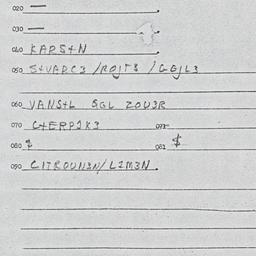 020 —
030 —
040 KARS+N
050 S+VARC3 /ROJT3 /GGJL3
060 VANS+L SGL ZOU3R
070 C+ERPJK3 073
080 $ 081 $
090 CITROUN3N/L2M3N.